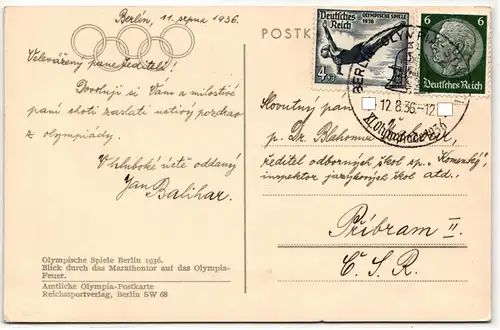 Berlín, 11. srpna 1936.
Velevážený pane řediteli!
Dovoluji si Vám a milostivé
paní choti zaslati uctivý pozdrav
z olympiády.
V hluboké úctě oddaný
Jan Balihar.
Olympische Spiele Berlin 1936.
Blick durch das Marathontor auf das Olympia-
Feuer.
Amtliche Olympia-Postkarte
Reichssportverlag, Berlin SW 68
POSTK
OLYMPISCHE SPIELE
1936
Deutsches Reich
4
6 6
Deutsches Reich
BERLIN OLYMP
12.8.36-12
XI. Olympiade 1936
Slovutný pan
p. Dr. Blahomír
ředitel odborných škol sp. „Komenský",
inspektor jazykových škol atd.
Příbram II.
Č. S. R.